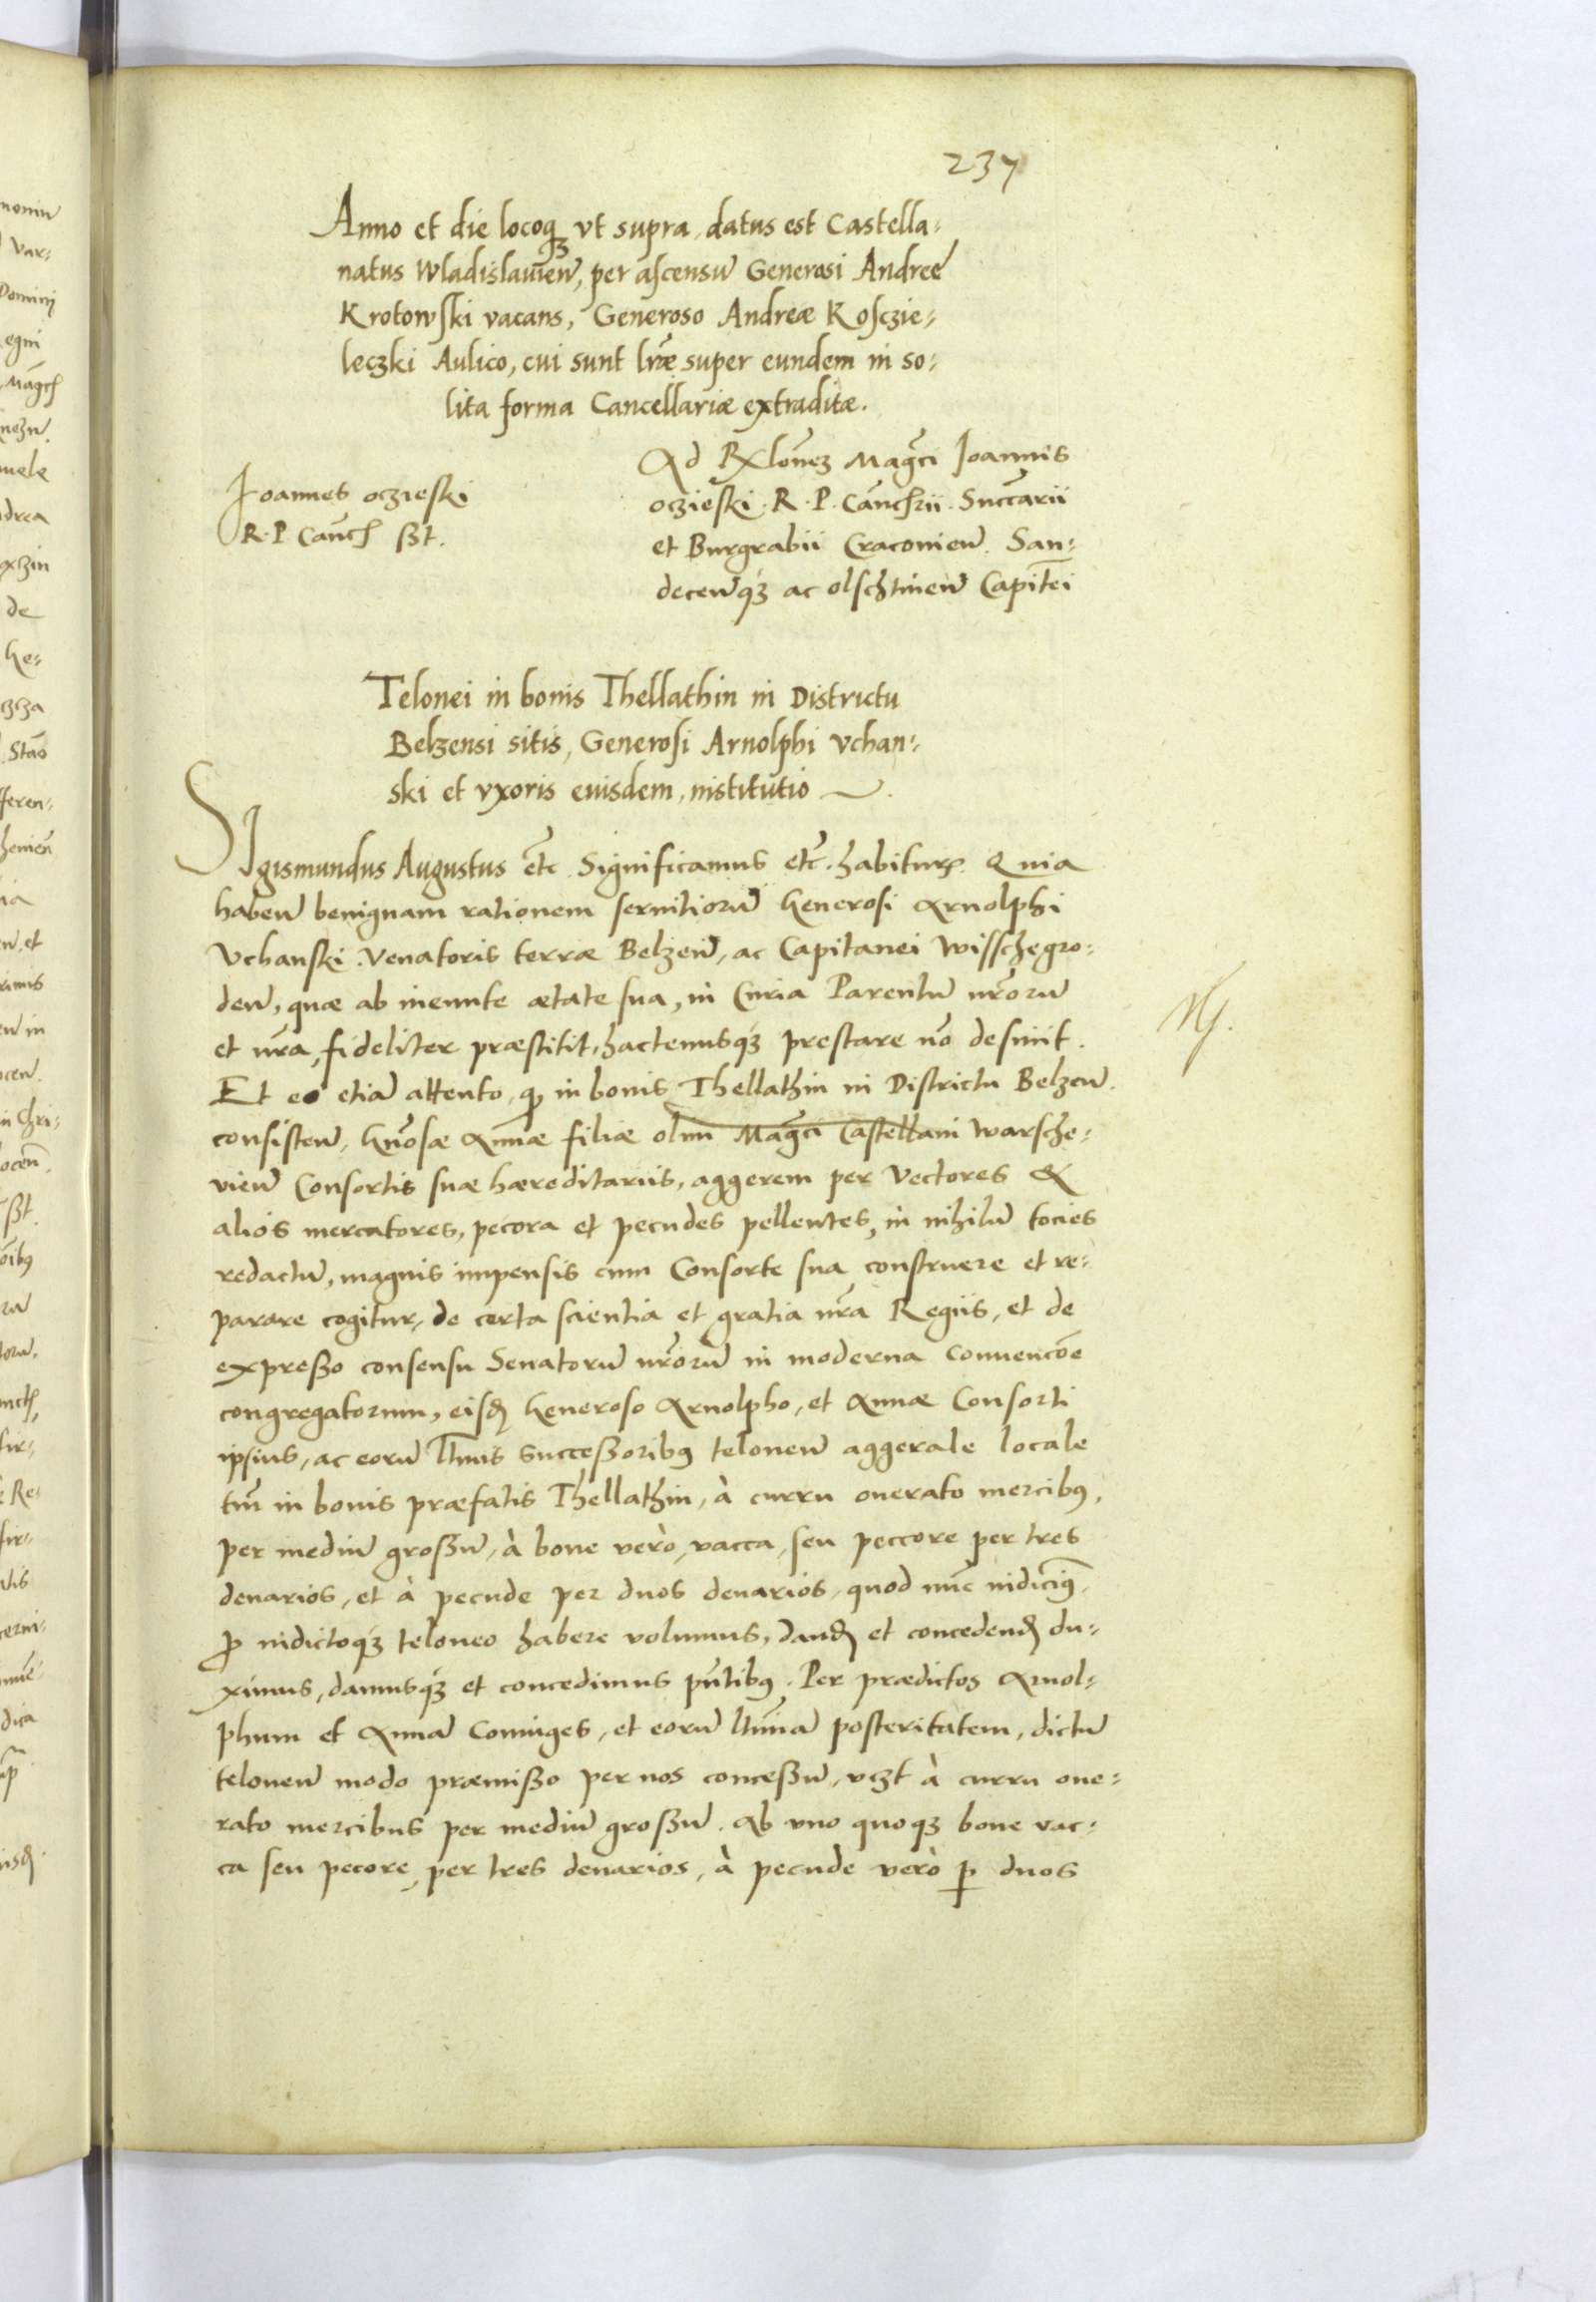 237
Anno et die locoqȝ vt supra, datus est Castella⸗
natus Wladislauien̄, per ascensū Generosi Andreę
Krotowski vacans, Generoso Andreæ Kosczie⸗
leczki Aulico, cui sunt lr̄æ super eundem in so⸗
lita forma Cancellariæ extraditæ.
Ad Rl̄onem Mag̃ci Joannis
Joannes oczieski
oczieski. R. P. Cancr̃ii. Succ̃arii
R. P Canc̃ sst.
et Burgrabii Craconien̄. San⸗
decen̄qȝ ac olschtinen̄ Capit̃ei
Telonei in bonis Thellathin in Districtu
Belzensi sitis, Generosi Arnolphi vchan⸗
ski et vxoris eiusdem, institutio
Sigismundus Augustus etc̃ Significamus etc̃. habitur. Quia
haben̄ benignam rationem seruitiorū Generosi Arnolphi
Vchanski. Venatoris terræ Belzen̄, ac Capitanei Wisschegro⸗
den̄, quæ ab ineunte ætate sua, in Curia Parentū nr̄orū
et nr̄a, fideliter præstitit, hactenusqȝ prestare nō desinit.
Et eo etiā attento, qɖ in bonis Thellathin in Districtu Belzen̄.
consisten̄, Gn̄osæ Annæ filiæ olim Mag̃ci Castellani warsche⸗
uien̄ Consortis suæ hæreditariis, aggerem per Vectores &
alios mercatores, pecora et pecudes pellentes, in nihilū tocies
redactū, magnis impensis cum Consorte sua construere et re⸗
parare cogitur, de certa scientia et gratia nr̄a Regiis, et de
expresso consensu Senatorū nr̄orū in moderna conuencōe
congregatorum, eisɖ Generoso Arnolpho, et Annæ Consorti
ipsius, ac eorū lt̃imis successoribꝰ teloneū aggerale locale
tm̄ in bonis præfatis Thellathin, à curru onerato mercibꝰ,
per mediū grossū, à boue verò, vacca, seu peccore per tres
denarios, et à pecude per duos denarios, quod nūc indicimꝰ,
ꝓ indictoqȝ teloneo habere volumus, danɖ et concedenɖ du⸗
ximus, damusqȝ et concedimus pn̄tibꝰ. Per prædictos Arnol⸗
phum et Annā Coniuges, et eorū lt̃imā posteritatem, dictū
teloneū modo præmisso per nos concessū, vczt à curru one⸗
rato mercibus per mediū grossū. Ab vno quoqȝ boue vac⸗
ca seu pecore, per tres denarios, à pecude verò ꝑ duos